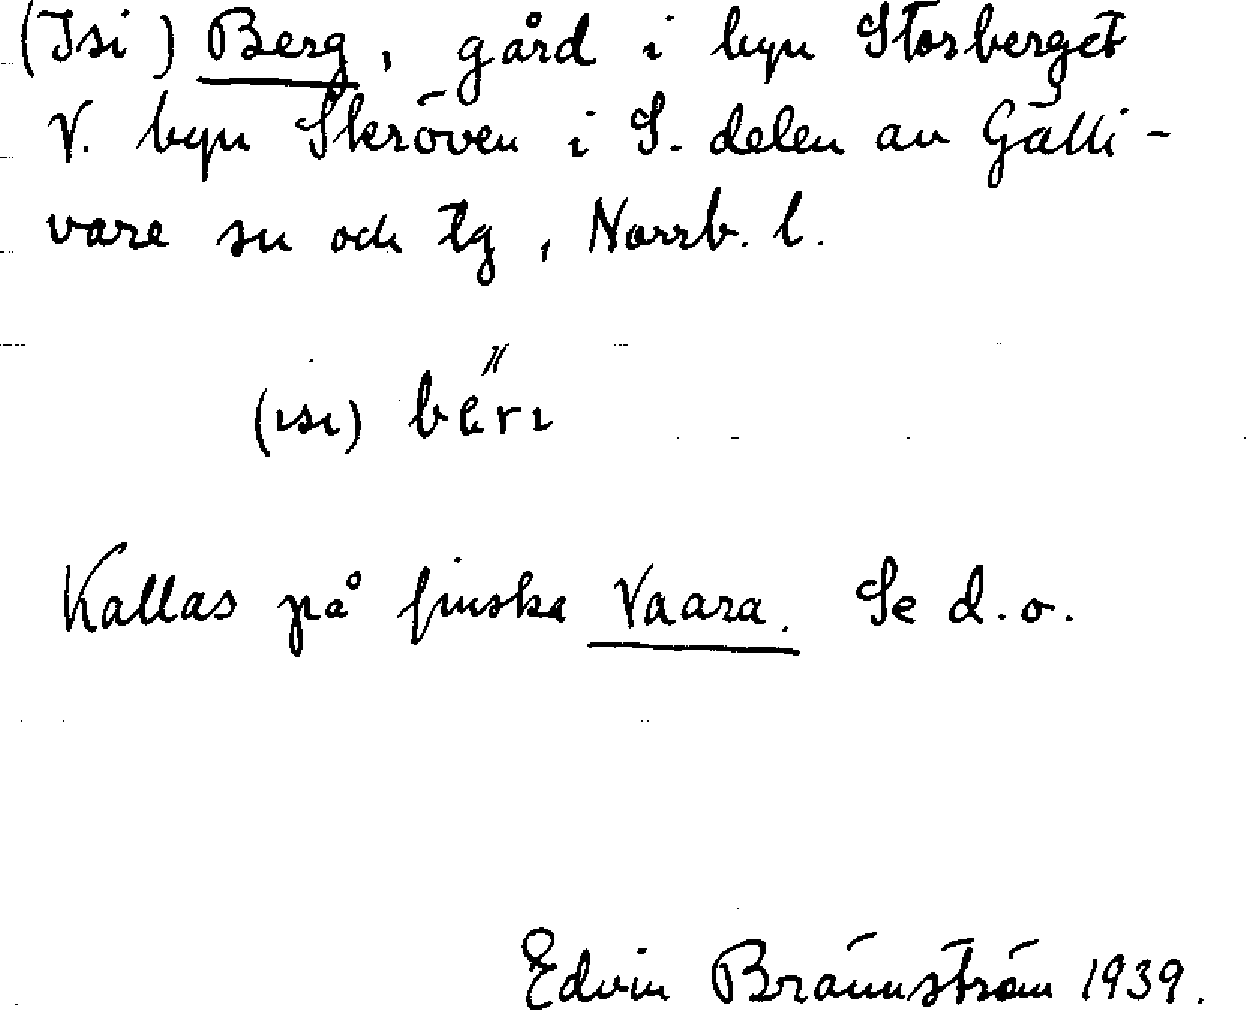 (Isi) Berg, gård i byn Storberget
V. byn Skröven i S. delen av Gälli-
vare sn och tg, Norrb. l.
(ısı) bärı
Kallas på finska Vaara. Se d.o.
Edvin Brännström 1939.